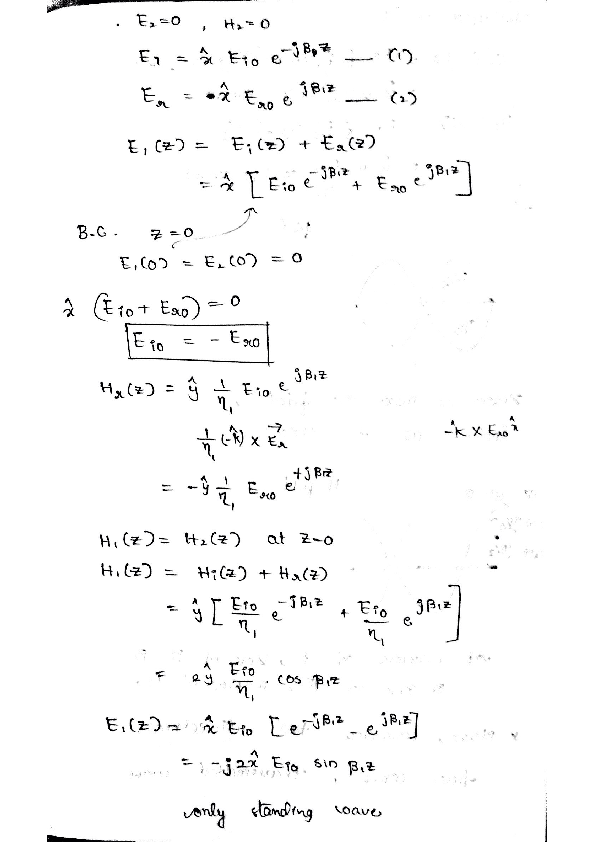 . E₂=0 , H₂=0
E₁ = x̂ Eio e^-jβ₁z — (1)
Er = x̂ Ero e^jβ₁z — (2)
E₁(z) = Ei(z) + Er(z)
= x̂ [Eio e^-jβ₁z + Ero e^jβ₁z]
B.C. z=0
E₁(0) = E₂(0) = 0
x̂ (Eio + Ero) = 0
Eio = - Ero
Hr(z) = ŷ 1/η₁ Eio e^jβ₁z
1/η₁ (-k̂) × E⃗r
-k̂ × Ero x̂
= -ŷ 1/η₁ Ero e^+jβ₁z
H₁(z) = H₂(z) at z=0
H₁(z) = Hi(z) + Hr(z)
= ŷ [Eio/η₁ e^-jβ₁z + Eio/η₁ e^jβ₁z]
= 2ŷ Eio/η₁ . cos β₁z
E₁(z) = x̂ Eio [e^-jβ₁z - e^jβ₁z]
= -j2x̂ Eio sin β₁z
only standing wave